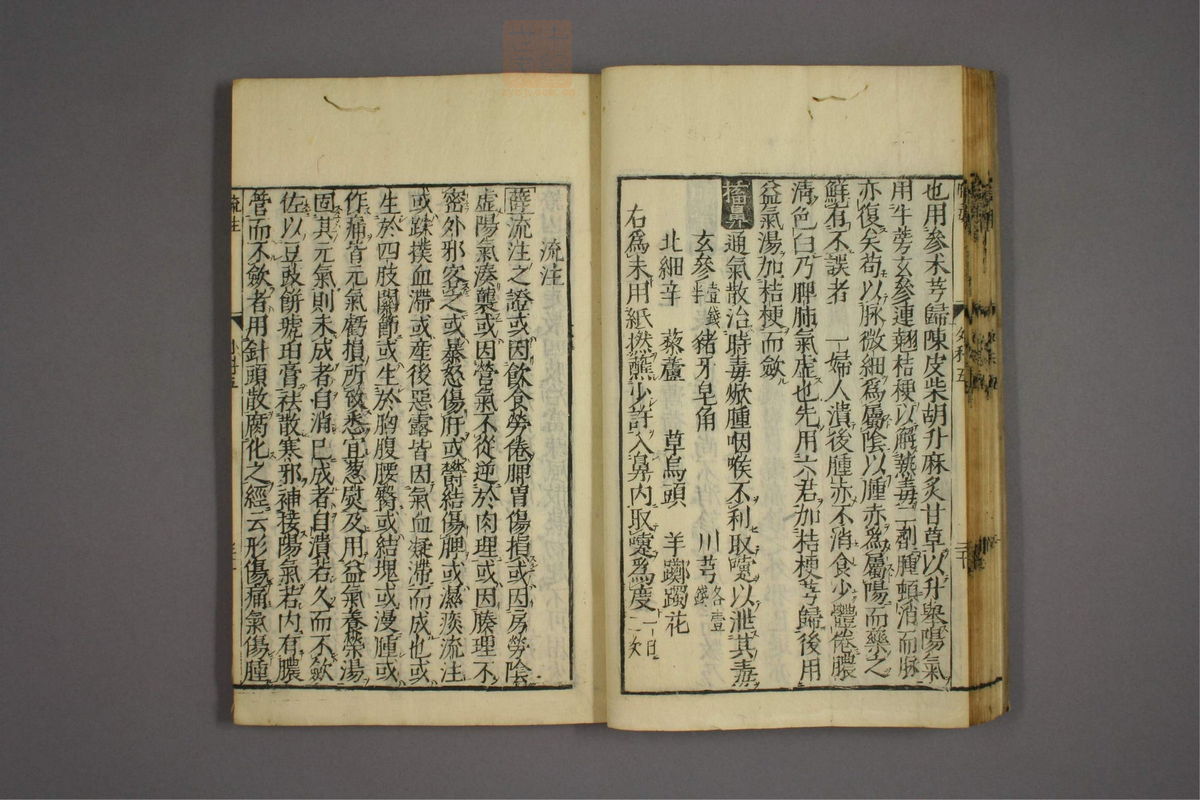 也用參朮芎歸陳皮柴胡升麻炙甘草以升舉陽氣
用牛蒡玄參連翹桔梗以解熱毒二劑腫頓消而脉
亦復矣苟以脉微細爲屬陰以腫赤爲屬陽而藥之
鮮有不誤者 一婦人潰後腫赤不消食少體倦膿
淸色白乃脾肺氣虛也先用六君加桔梗芎歸後用
益氣湯加桔梗而斂
㗜鼻通氣散治時毒焮腫咽喉不利取嚏以泄其毒
玄參壹錢半 猪牙皂角 川芎各壹錢
北細辛 藜蘆 草烏頭 羊躑躅花
右爲末用紙撚蘸少許入鼻内取嚏爲度一日二次
流注
薛流注之證或因飲食勞倦脾胃傷損或因房勞陰
虛陽氣湊襲或因營氣不從逆於肉理或因腠理不
密外邪客之或暴怒傷肝或鬱結傷脾或濕痰流注
或跌撲血滯或産後惡露皆因氣血凝滯而成也或
生於四肢關節或生於胸腹腰臀或結塊或漫腫或
作痛皆元氣虧損所致悉宜葱熨及用益氣養榮湯
固其元氣則未成者自消已成者自潰若久而不斂
佐以豆豉餅琥珀膏袪散寒邪神接陽氣若内有膿
管而不斂者用針頭散腐化之經云形傷痛氣傷腫
流注
外科五